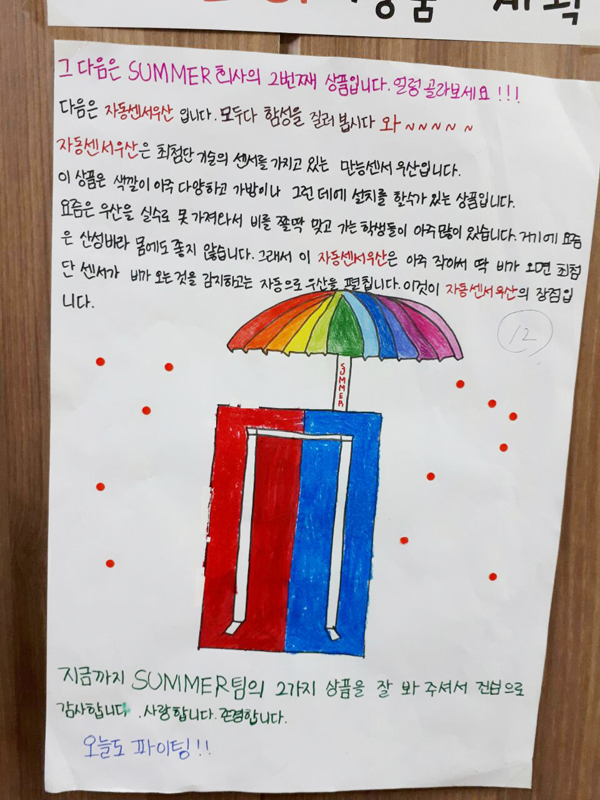 상품 계획
그 다음은 SUMMER 회사의 2번째 상품입니다. 얼렁 골라보세요!!!
다음은 자동센서우산 입니다. 모두다 함성을 질러 봅시다 와~~~~~
자동센서우산은 최첨단 기술의 센서를 가지고 있는 만능센서 우산입니다.
이 상품은 색깔이 아주 다양하고 가방이나 그런 데에 설치를 할수가 있는 상품입니다.
요즘은 우산을 실수로 못 가져와서 비를 쫄딱 맞고 가는 학생들이 아주 많이 있습니다. 거기에 요즘
은 산성비라 몸에도 좋지 않습니다. 그래서 이 자동센서우산은 아주 작아서 딱 비가 오면 최첨
단 센서가 비가 오는 것을 감지하고는 자동으로 우산을 펼칩니다. 이것이 자동센서우산의 장점입
니다.
12
SUMMER
지금까지 SUMMER팀의 2가지 상품을 잘 봐 주셔서 진심으로
감사합니다. 사랑합니다. 존경합니다.
오늘도 파이팅!!